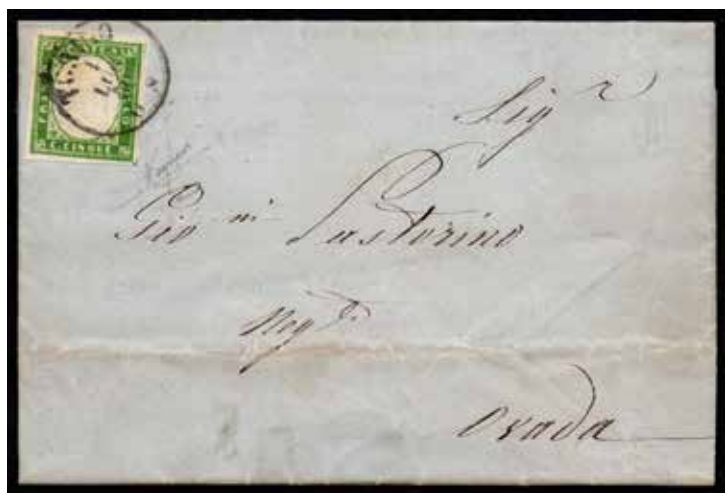 C. CINQUE
Sig r
Gio ni Pastorino
Neg te
Ovada